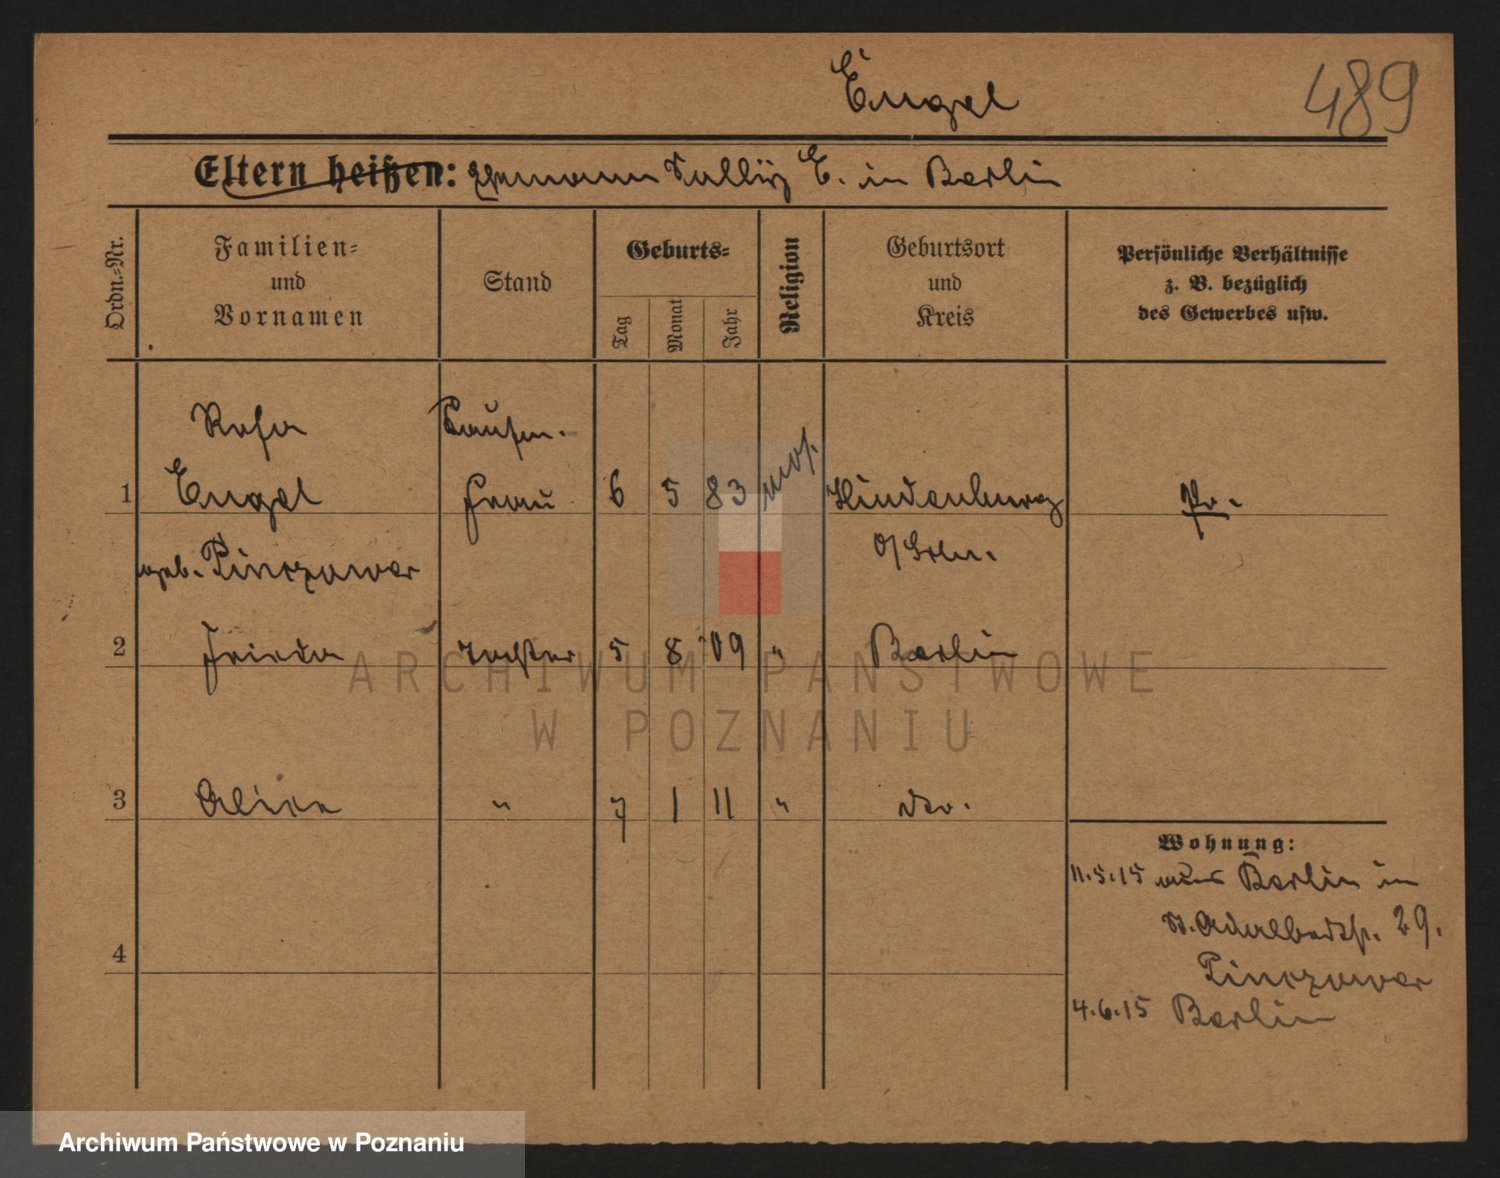 Engel
489
Eltern heißen: Ehemann Sally E. in Berlin
Ordn.-Nr.
Familien-
und
Vornamen
Stand
Geburts-
Tag
Monat
Jahr
Religion
Geburtsort
und
Kreis
Persönliche Verhältnisse
z. B. bezüglich
des Gewerbes usw.
Rosa Kaufm.-
1 Engel Frau 6 5 83 mos. Hindenburg Pr.
geb. Pinczower O/Schl.
2 Frieda Tochter 5 8 09 " Berlin
3 Alice " 7 1 11 " do.
Wohnung:
11.5.15 aus Berlin in
St. Adalbertstr. 29.
4
Pinczower
4.6.15 Berlin
ARCHIWUM PAŃSTWOWE
W POZNANIU
Archiwum Państwowe w Poznaniu